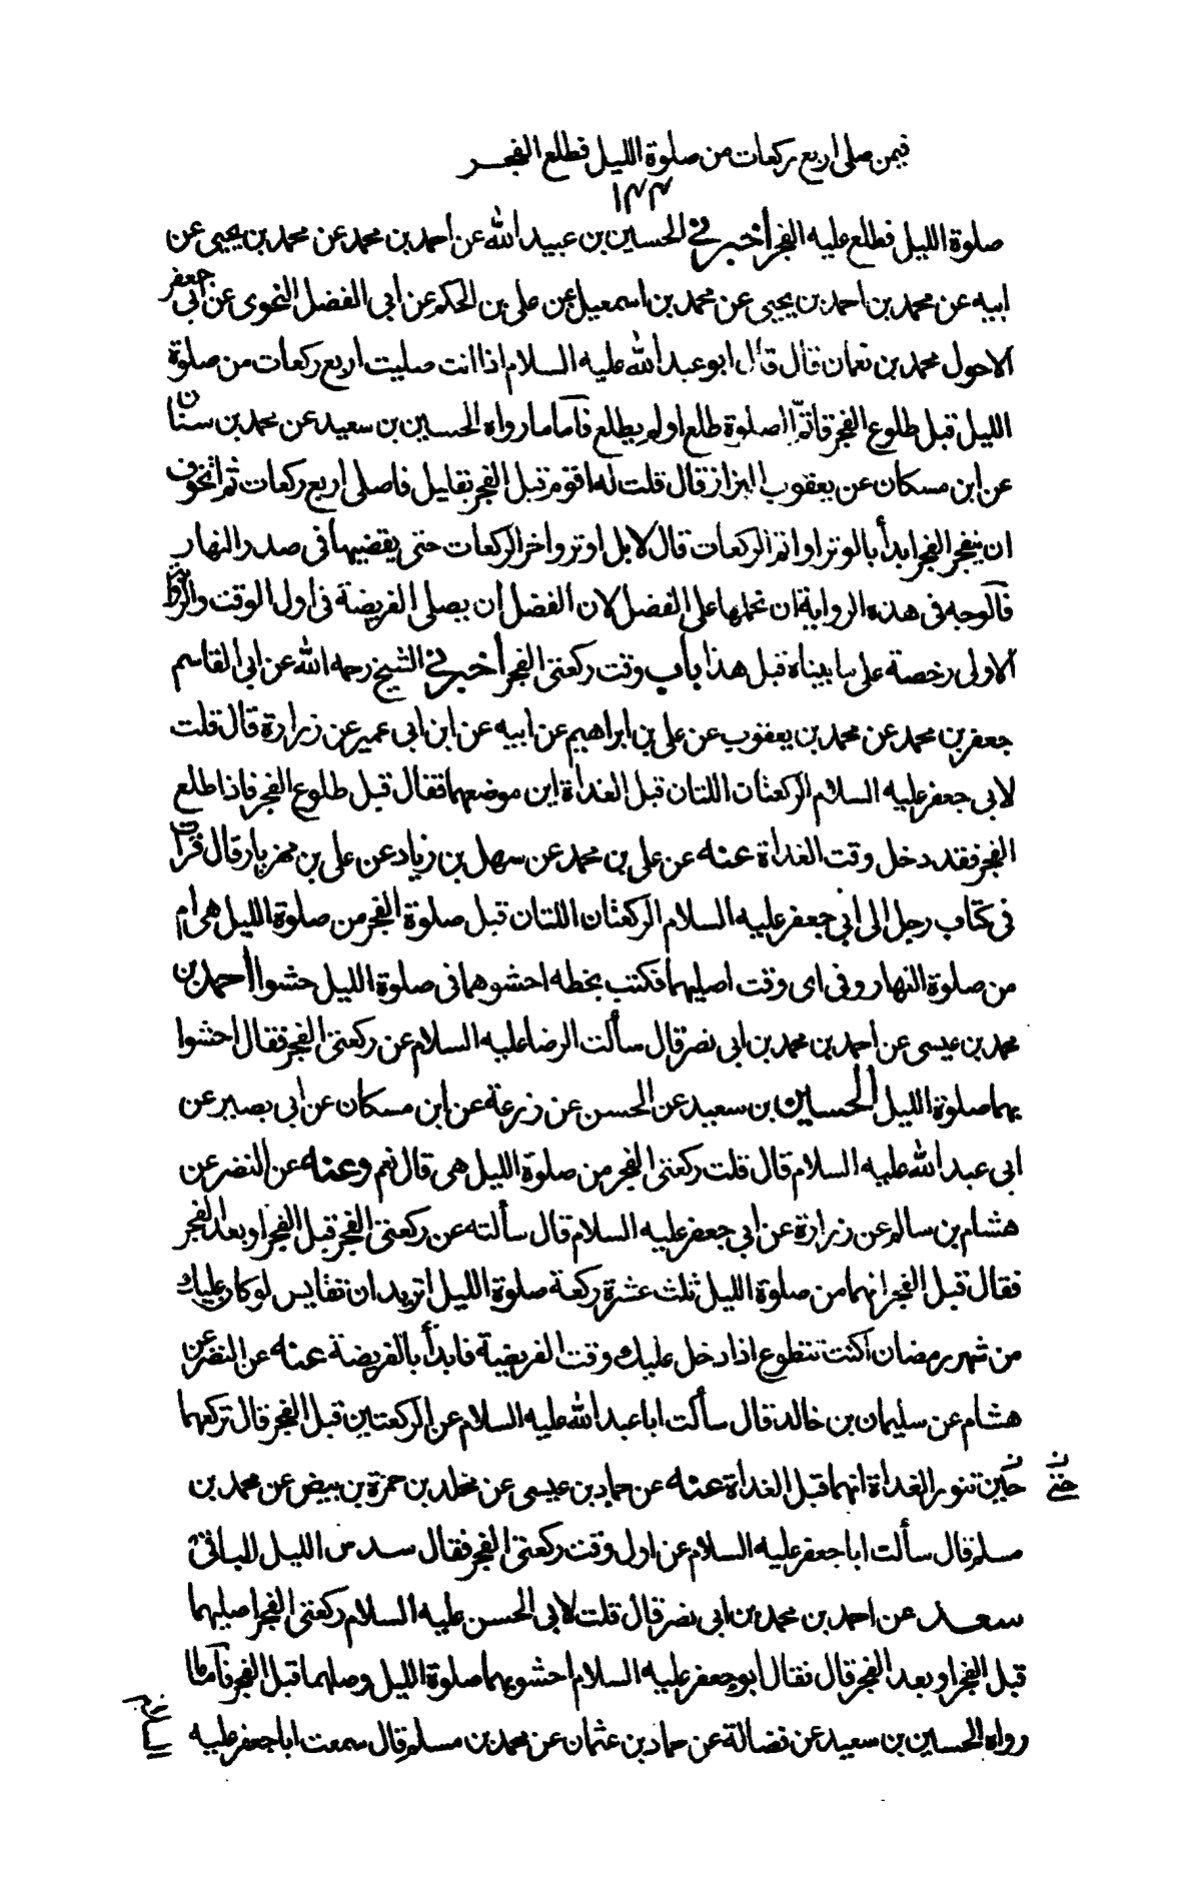 فيمن صلى اربع ركعات من صلوة الليل فطلع الفجر
١٣٣
صلوة الليل فطلع عليه الفجر أخبرني الحسين بن عبيد الله عن احمد بن محمد عن محمد بن يحيى عن
ابيه عن محمد بن احمد بن يحيى عن محمد بن اسمعيل عن على بن الحكم عن ابى الفضل النحوى عن ابى جعفر
الاحول محمد بن نعمان قال قال ابو عبد الله عليه السلام اذا انت صليت اربع ركعات من صلوة
الليل قبل طلوع الفجر فاتمّ الصلوة طلع او لم يطلع فأما ما رواه الحسين بن سعيد عن محمد بن سنان
عن ابن مسكان عن يعقوب البزاز قال قلت له اقوم قبل الفجر بقليل فاصلى اربع ركعات ثم اتخوف
ان ينفجر الفجر ابدأ بالوتر او اتم الركعات قال لا بل اوتر واخر الركعات حتى يقضيها فى صدر النهار
فالوجه فى هذه الرواية ان نحملها على الفضل لان الفضل ان يصلى الفريضة فى اول الوقت والرواية
الاولى رخصة على ما بيناه قبل هذا باب وقت ركعتى الفجر أخبرني الشيخ رحمه الله عن ابى القاسم
جعفر بن محمد عن محمد بن يعقوب عن على بن ابراهيم عن ابيه عن ابن ابى عمير عن زرارة قال قلت
لابى جعفر عليه السلام الركعتان اللتان قبل الغداة اين موضعهما فقال قبل طلوع الفجر فاذا طلع
الفجر فقد دخل وقت الغداة عنه عن على بن محمد عن سهل بن زياد عن على بن مهزيار قال قرأت
فى كتاب رجل الى ابى جعفر عليه السلام الركعتان اللتان قبل صلوة الفجر من صلوة الليل هى ام
من صلوة النهار وفى اى وقت اصليهما فكتب بخطه احشوهما فى صلوة الليل حشوا أحمد بن
محمد بن عيسى عن احمد بن محمد بن ابى نصر قال سألت الرضا عليه السلام عن ركعتى الفجر فقال احشوا
بهما صلوة الليل الحسين بن سعيد عن الحسن عن زرعة عن ابن مسكان عن ابى بصير عن
ابى عبد الله عليه السلام قال قلت ركعتى الفجر من صلوة الليل هى قال نعم وعنه عن النضر عن
هشام بن سالم عن زرارة عن ابى جعفر عليه السلام قال سألته عن ركعتى الفجر قبل الفجر او بعد الفجر
فقال قبل الفجر انهما من صلوة الليل ثلث عشرة ركعة صلوة الليل اتريد ان تقايس لو كان عليك
من شهر رمضان اكنت تتطوع اذا دخل عليك وقت الفريضة فابدأ بالفريضة عنه عن النضر عن
هشام عن سليمان بن خالد قال سألت ابا عبد الله عليه السلام عن الركعتين قبل الفجر قال تركعهما
حين تنور الغداة انهما قبل الغداة عنه عن حماد بن عيسى عن مخلد بن حمزة بن بيض عن محمد بن
مسلم قال سألت ابا جعفر عليه السلام عن اول وقت ركعتى الفجر فقال سدس الليل الباقى
سعد عن احمد بن محمد بن ابى نصر قال قلت لابى الحسن عليه السلام ركعتى الفجر اصليهما
قبل الفجر او بعد الفجر قال فقال ابو جعفر عليه السلام احشو بهما صلوة الليل وصلهما قبل الفجر فأما ما
رواه الحسين بن سعيد عن فضالة عن حماد بن عثمان عن محمد بن مسلم قال سمعت ابا جعفر عليه